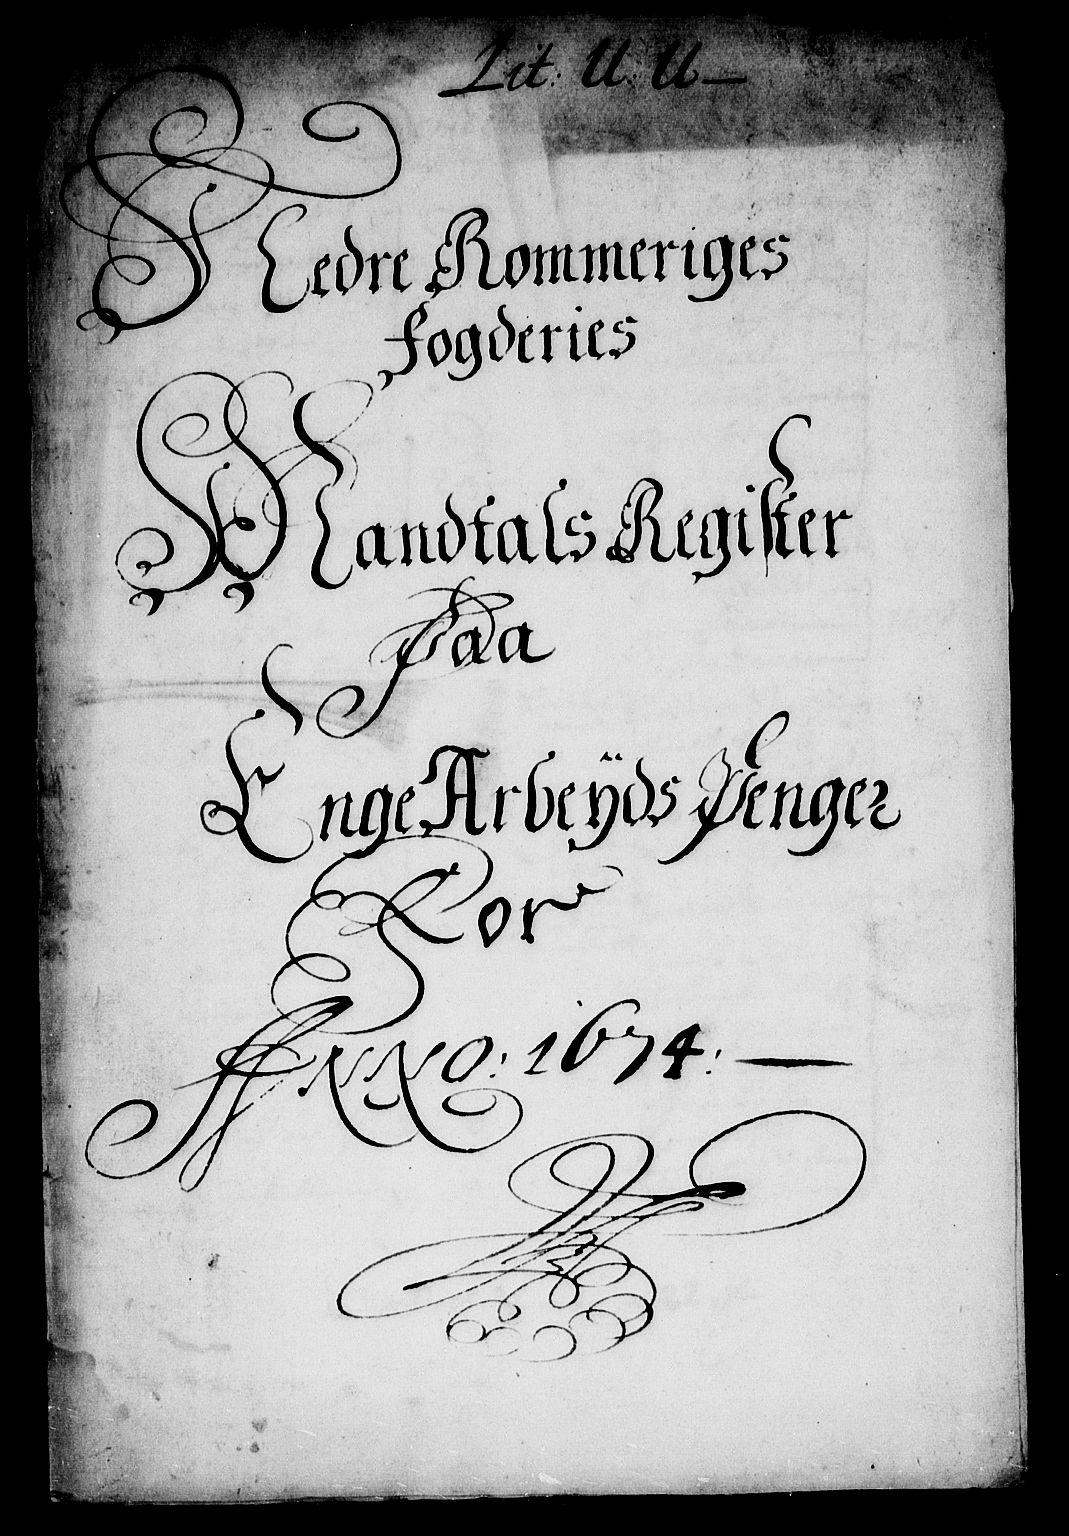 Lit: U: U
Nedre Rommeriges
fogderies
Mandtals Register
Paa
Enge Arbeÿds Penger
For
ANNO: 1674: